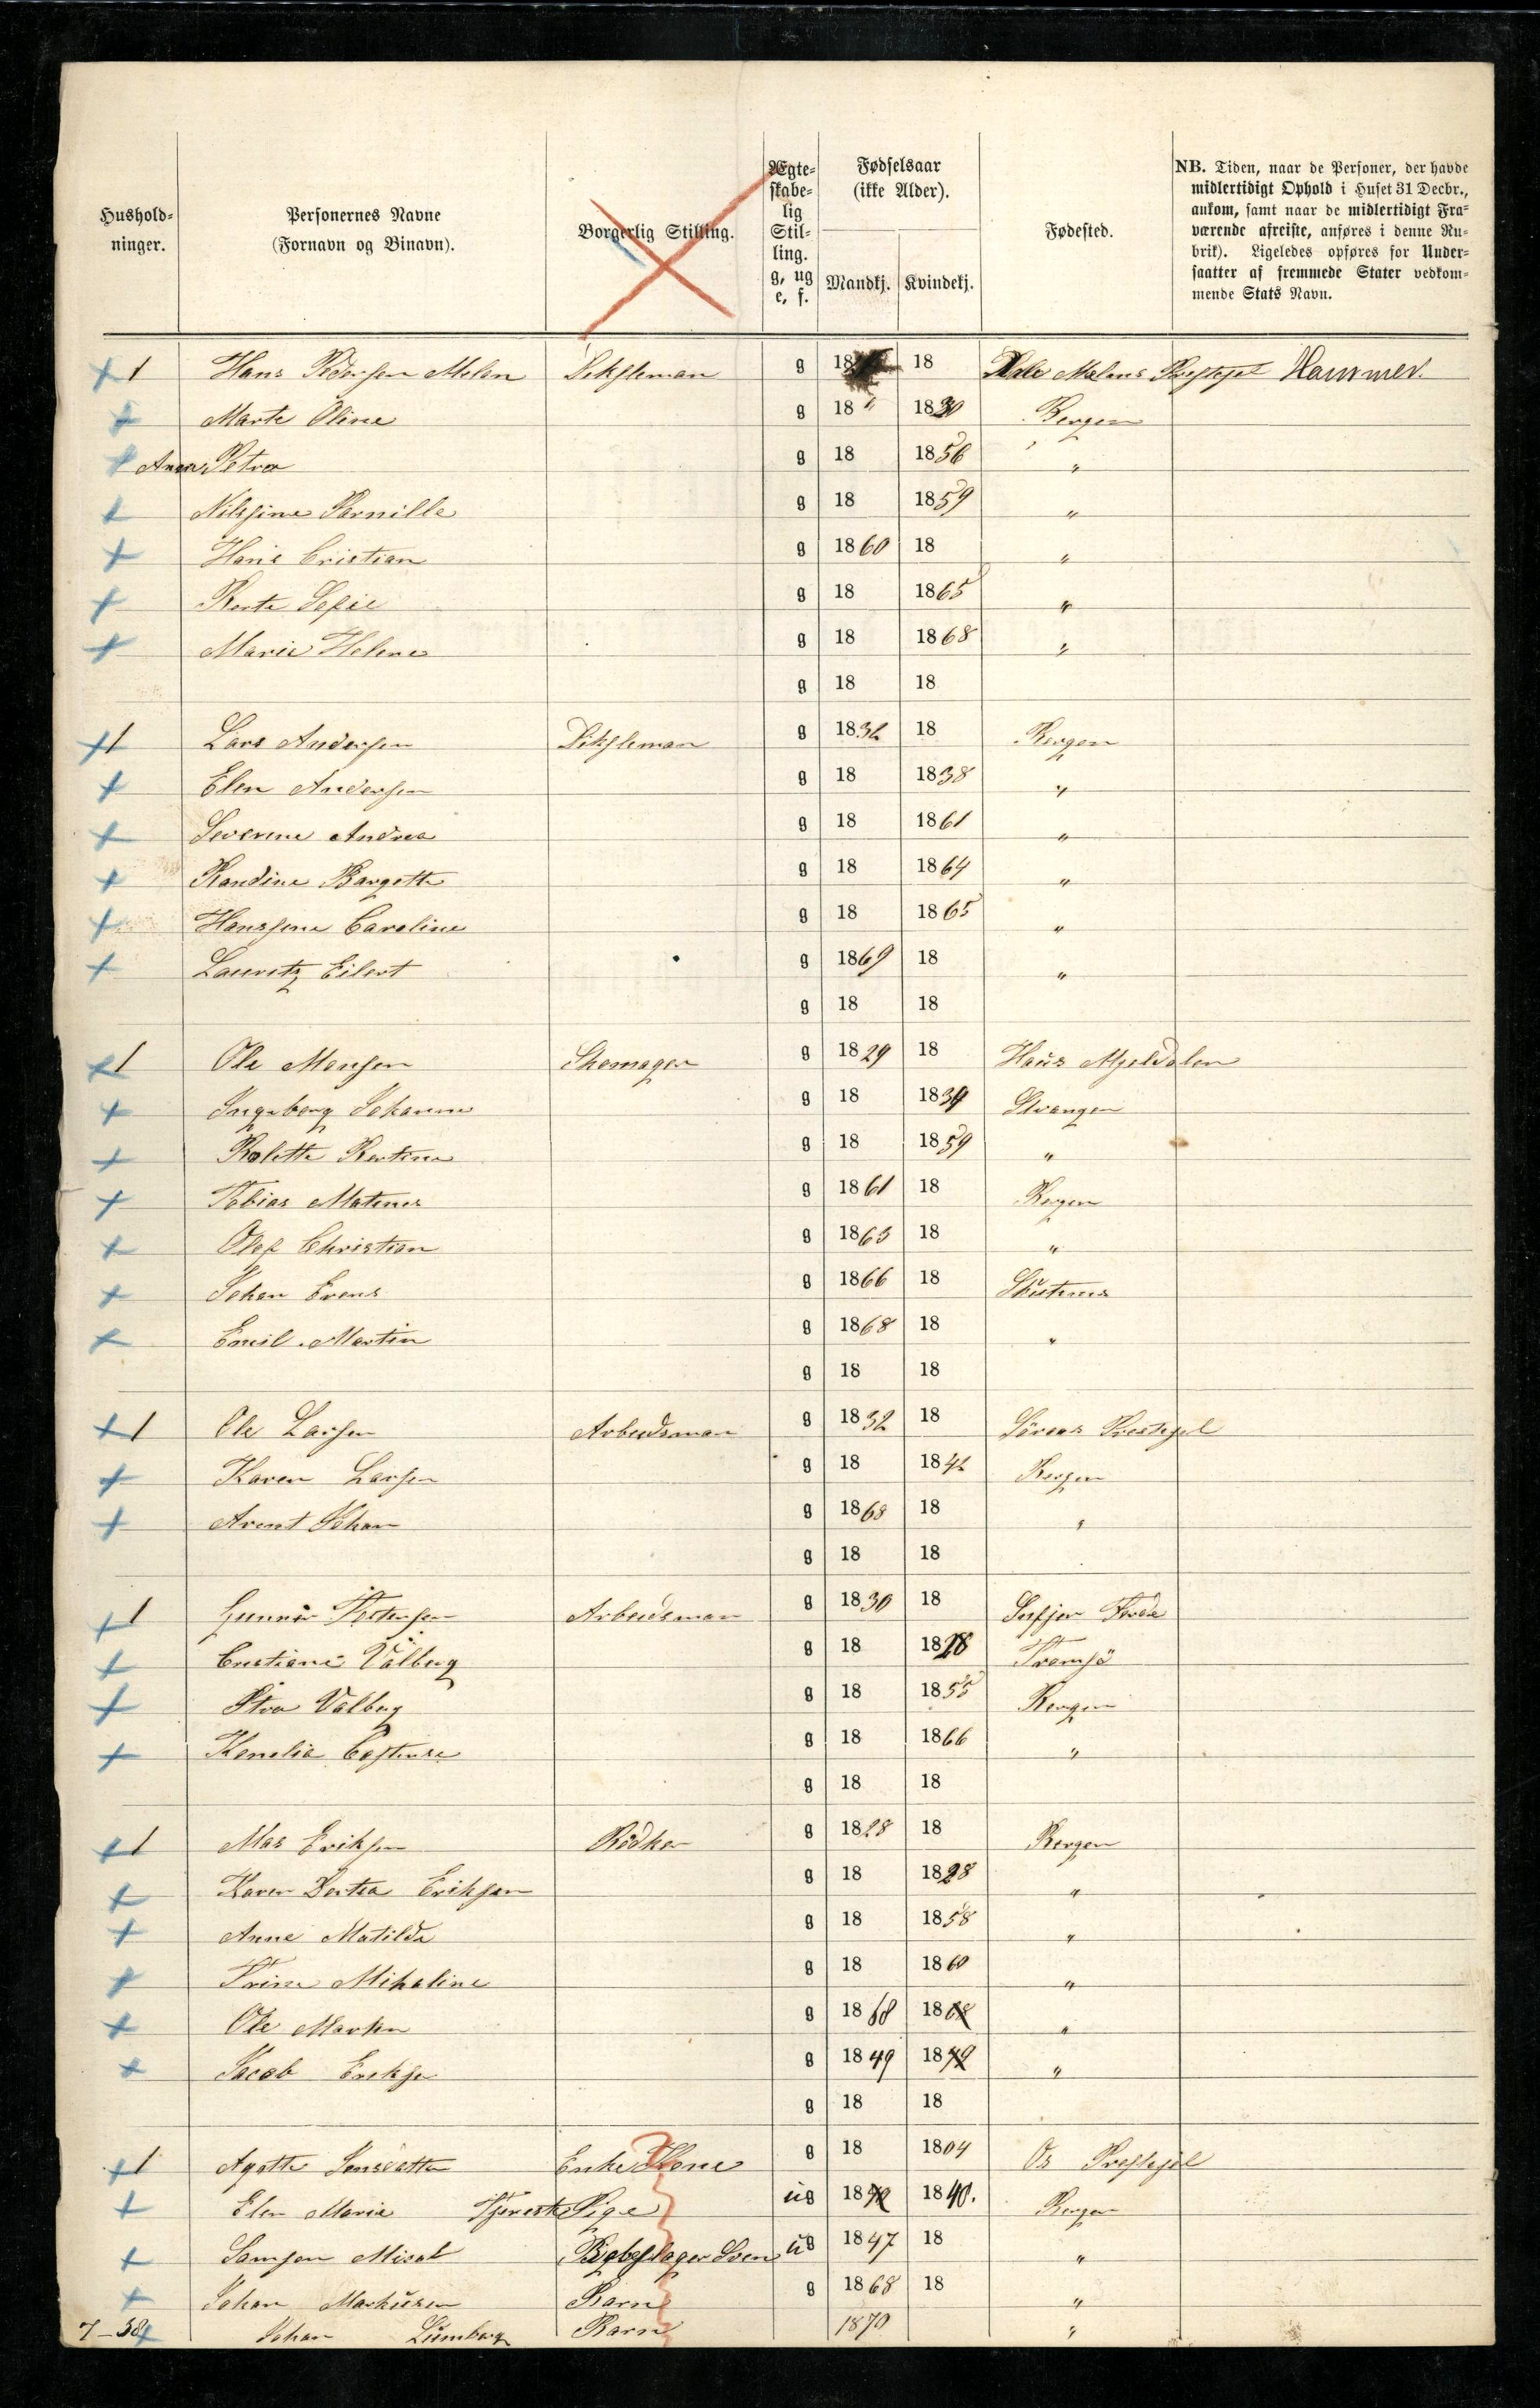 Hushold- ninger.
Personernes Navne
(Fornavn og Binavn).
Borgerlig Stilling.
Ægte- skabe- lig Stil- ling. g, ug e, f.
Fødselsaar
(ikke Alder).
Mandkj. Kvindekj.
Fødested.
NB. Tiden, naar de Personer, der havde
midlertidigt Ophold i Huset 31 Decbr.,
ankom, samt naar de midlertidigt Fra-
værende afreiste, anføres i denne Ru-
brik). Ligeledes opføres for Under-
saatter af fremmede Stater vedkom-
mende Stats Navn.
1 Hans Pedersen Melen g 18 18 Hammer
Marte Oline g 18 " 1830 Bergen
Anna Petra g 18 1856 "
Nilsine Pernille g 18 1859 "
Hans Cristian g 1860 18 "
Berte Sofie g 18 1865 "
Marie Helene g 18 1868 "
g 18 18
1 Lars Andersen g 1832 18 Bergen
Elen Andersen g 18 1838 "
Severine Andrea g 18 1861 "
Randine Bargette g 18 1864 "
Hanssine Caroline g 18 1865 "
Lauretz Eilert g 1869 18 "
g 18 18
1 Ole Monsen Skomager g 1829 18 Haus Mjeldalen
Ingeborg Johanne g 18 1834 Stvanger
Bolette Bertine g 18 1859 "
Tobias Matines g 1861 18 Bergen
Olef Christian g 1863 18 "
Johan Evens g 1866 18 Skutenes
Emil Martin g 1868 18 "
g 18 18
1 Ole Larsen Arbeidsman g 1832 18 Prestegel
Karen Larsen g 18 1842 Bergen
Arent Johan g 1868 18 "
g 18 18
1 Gunnar Arbeidsman g 1830 18
Cristiane Valberg g 18 1828 Tromsö
Petra Valberg g 18 1855 Bergen
Kanelia g 18 1866 "
g 18 18
1 Mas Eriksen Bödker g 1828 18 Bergen
Karen Dortea Eriksen g 18 1828 "
Anne Matilde g 18 1858 "
Trine Mikaline g 18 1860 "
Ole Martin g 1868 1868 "
Jacob Eriksen g 1849 1849 "
g 18 18
1 Agatte Jensdatter Enke Kone g 18 1804 Os Prestejel
Elen Marie Tjeneste Pige ug 1840 1840. Bergen
Samson Misal Sven ug 1847 18 "
Johan Markusen Barn g 1868 18 "
7–38 Johan Lumberg Barn 1870 "